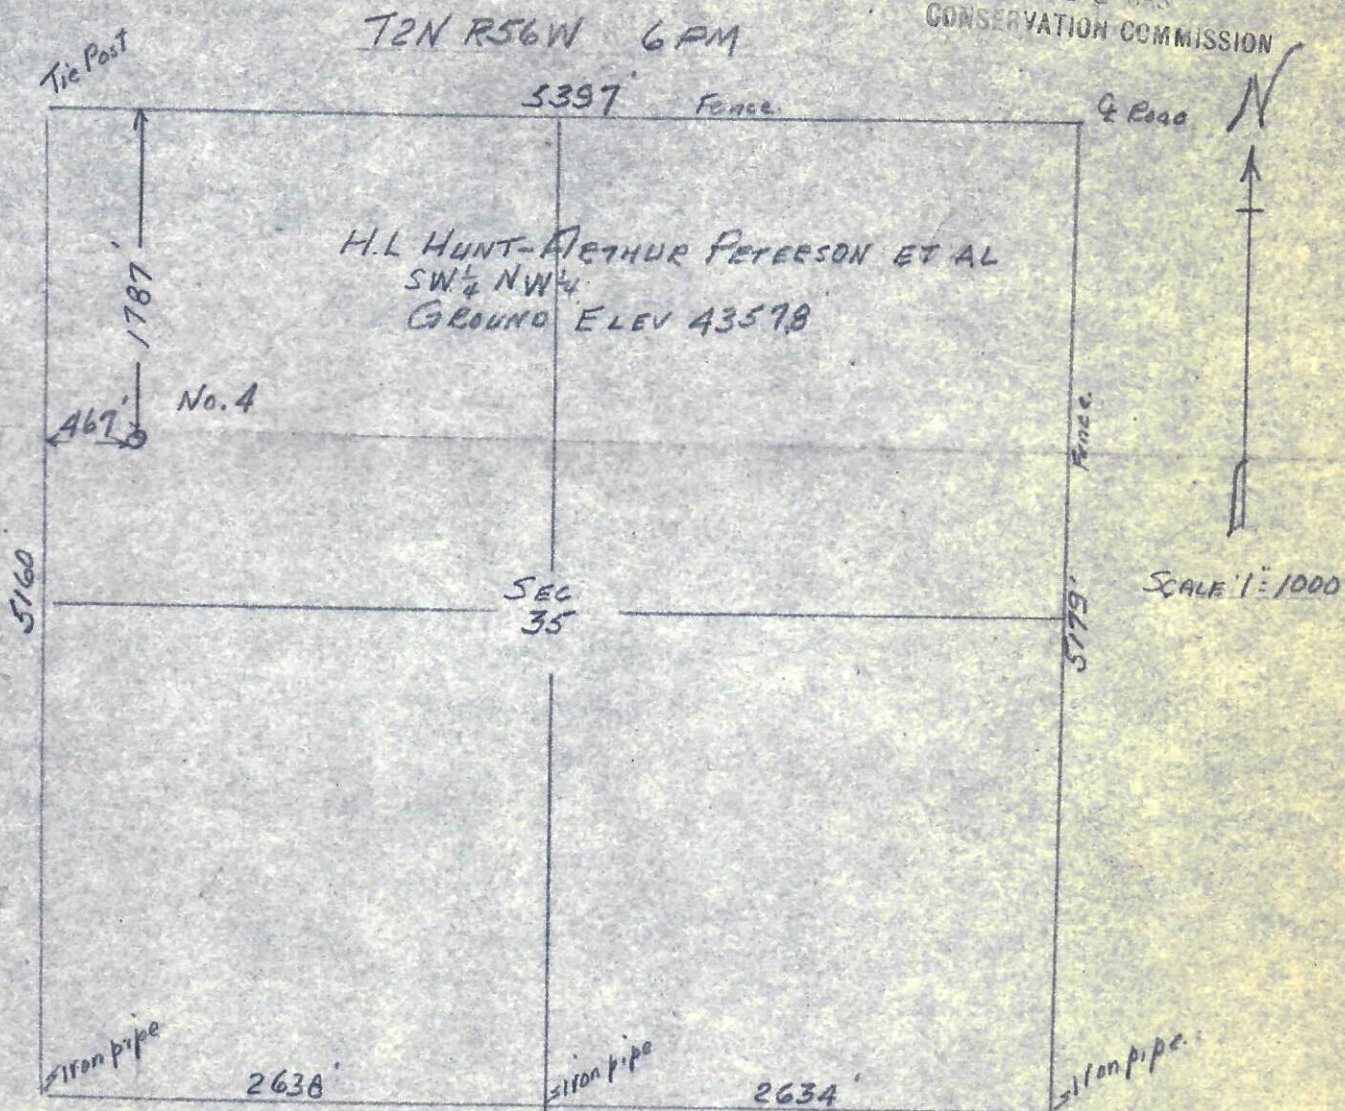 T2N R56W 6 PM
CONSERVATION COMMISSION
Tie Post
5397' Fence
℄ Road
N
H.L HUNT-ARTHUR PETERSON ET AL
SW ¼ NW ¼
GROUND ELEV 4357.8
1787'
No. 4
467'
Fence
5160
SEC
35
5179'
SCALE 1"=1000
Iron pipe
2638'
Iron pipe
2634'
Iron pipe